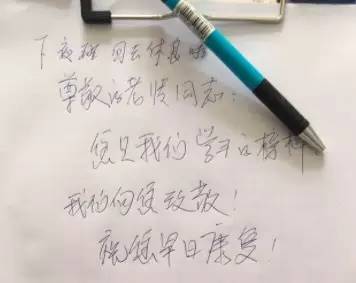 下夜班回去休息啦
尊敬的老贤同志：
您是我们学习的榜样
我们向您致敬！
祝您早日康复！